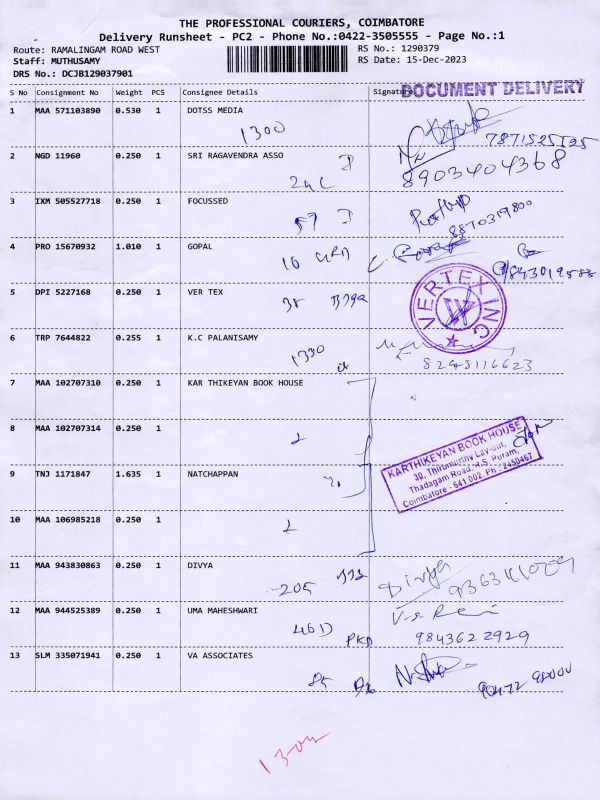 THE PROFESSIONAL COURIERS, COIMBATORE
Delivery Runsheet - PC2 - Phone No.:0422-3505555 - Page No.:1
Route: RAMALINGAM ROAD WEST RS No.: 1290379
Staff: MUTHUSAMY RS Date: 15-Dec-2023
DRS No.: DCJB129037901
DOCUMENT DELIVERY
S No Consignment No Weight PCS Consignee Details Signature
1 MAA 571103890 0.530 1 DOTSS MEDIA
1300 7871525525
2 NGD 11960 0.250 1 SRI RAGAVENDRA ASSO
8903404368
3 IXM 505527718 0.250 1 FOCUSSED
57 8870319800
4 PRO 15670932 1.010 1 GOPAL
16 9843019588
5 DPI 5227168 0.250 1 VER TEX
VERTEX INC
6 TRP 7644822 0.255 1 K.C PALANISAMY
1330 8248116623
7 MAA 102707310 0.250 1 KAR THIKEYAN BOOK HOUSE
8 MAA 102707314 0.250 1
KARTHIKEYAN BOOK HOUSE
30, Thirumurthy Lay-out,
Thadagam Road, R.S. Puram,
Coimbatore - 641 002. Ph : 2450467
9 TNJ 1171847 1.635 1 NATCHAPPAN
10 MAA 106985218 0.250 1
11 MAA 943830863 0.250 1 DIVYA
205 Divya
12 MAA 944525389 0.250 1 UMA MAHESHWARI
46D PKD 9843622929
13 SLM 335071941 0.250 1 VA ASSOCIATES